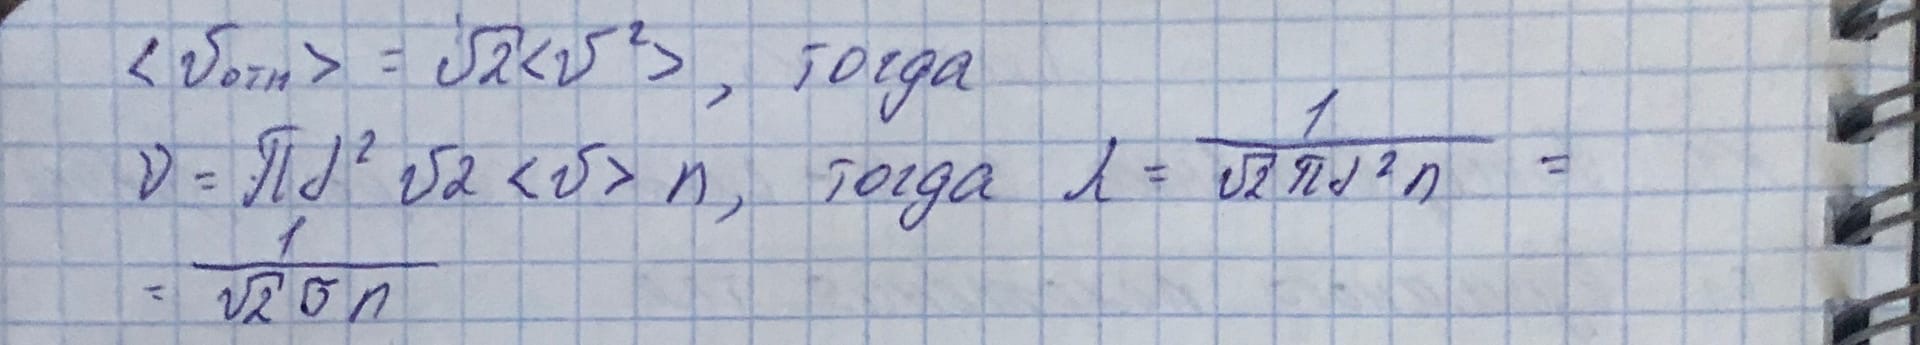 <υотн> = √2<υ²>, тогда
ν = πd² √2 <υ> n, тогда λ = 1/(√2 πd²n) =
= 1/(√2 σ n)